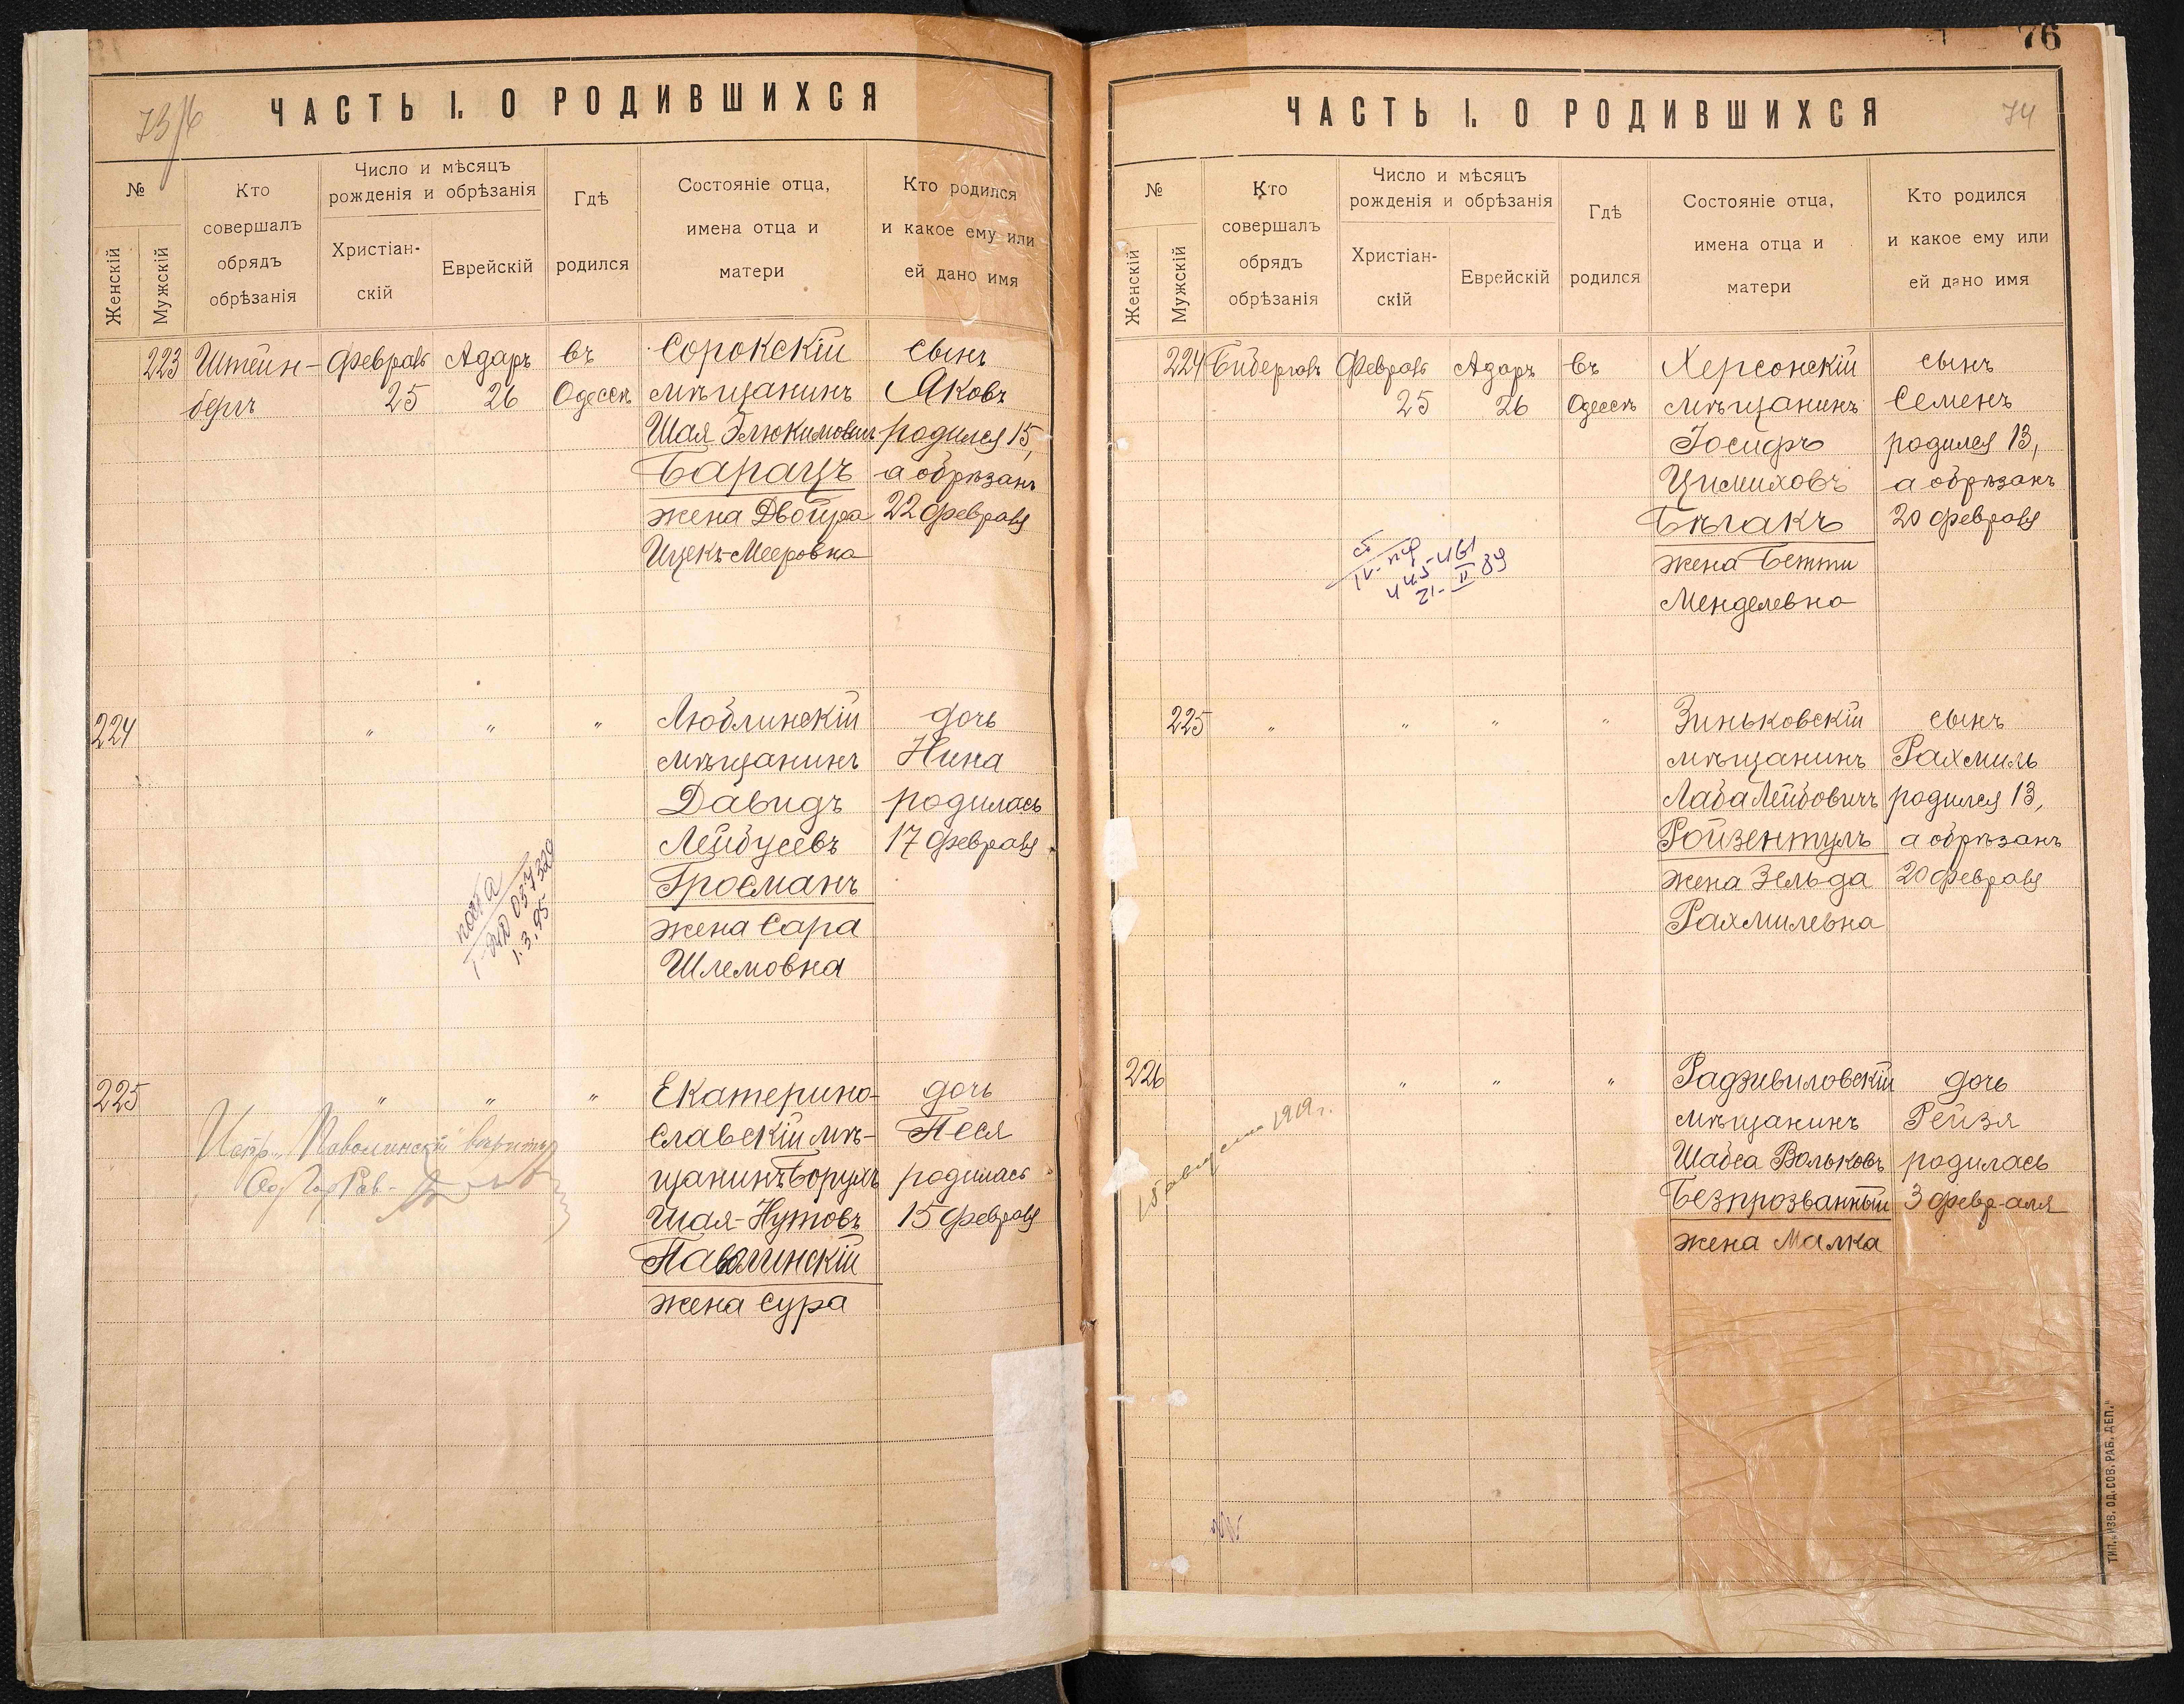 73/6
ЧАСТЬ I. О РОДИВШИХСЯ
№
Женскій
Мужскій
Кто совершалъ обрядъ обрѣзанія
Число и мѣсяцъ рожденія и обрѣзанія
Христіан-скій
Еврейскій
Гдѣ родился
Состояніе отца, имена отца и матери
Кто родился и какое ему или ей дано имя
223 Штейн- Февраль Адаръ въ Сорокскій сынъ
бергъ 25 26 Одессѣ мѣщанинъ Яковъ
Шая Элюкимовичъ родился 15,
Барацъ а обрѣзанъ
жена Двойра 22 февраля
Ицекъ-Мееровна
224 " " " Люблинскій дочь
мѣщанинъ Нина
Давидъ родилась
Лейбусевъ 17 февраля
Гросманъ
жена Сара
Шлемовна
057329
1.3.95
225 " " " Екатерино- дочь
славскій мѣ- Песя
щанинъ Борухъ родилась
Шая-Нутовъ 15 февраля
Паволинскій
жена Сура
Испр. "Паволинскій" вѣрить
Од Гор Рав-
76
74
ЧАСТЬ I. О РОДИВШИХСЯ
№
Женскій
Мужскій
Кто совершалъ обрядъ обрѣзанія
Число и мѣсяцъ рожденія и обрѣзанія
Христіан-скій
Еврейскій
Гдѣ родился
Состояніе отца, имена отца и матери
Кто родился и какое ему или ей дано имя
224 Февраль Адаръ въ Херсонскій сынъ
25 26 Одессѣ мѣщанинъ Семенъ
Іосифъ родился 13,
Цимиховъ а обрѣзанъ
Бѣгакъ 20 февраля
жена Бетти
Менделевна
445-461
21-II 89
225 " " " " Зиньковскій сынъ
мѣщанинъ Рахмиль
Лаба Лейбовичъ родился 13,
Ройзентулъ а обрѣзанъ
жена Зельда 20 февраля
Рахмилевна
226 " " " Радзивиловскій дочь
мѣщанинъ Рейзя
Шабса Вольковъ родилась
Безпрозванный 3 февраля
жена Малка
15 августа 1919 г.
ТИП. „ИЗВ. ОД. СОВ. РАБ. ДЕП."